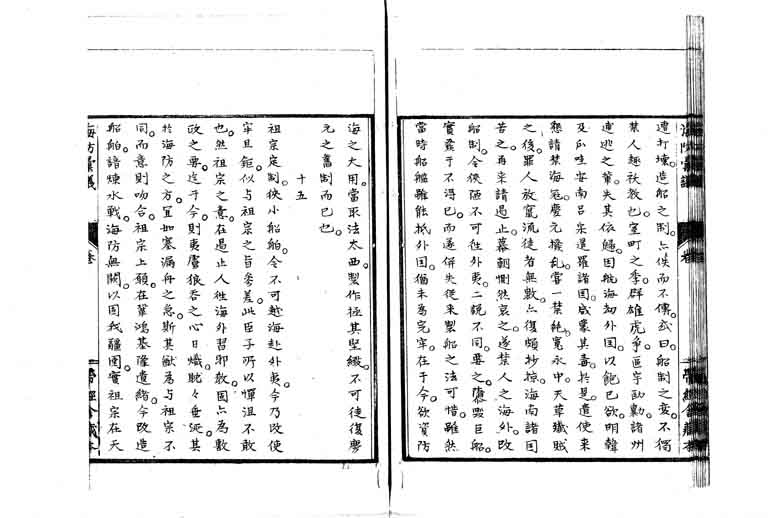 遭打壞造船之制亦佚而不傳或曰船制之變不獨
禁人趣秋教也室町之季群雄虎爭區宇劻勷諸州
逋逃之輩失其依歸因航海劫外国以飽已欲明韓
及爪哇安南呂宋暹羅諸国咸蒙其毒於是遣使来
懇請禁海寇慶元撥乱嘗一禁絁寛永中天草殲賊
之後罪人放竄流徒者無數亦復頗抄掠海南諸国
苦之再来請遏止幕朝惻然哀之遂禁人之海外改
船制令狭陋不可徃外夷二説不同要之隳毀巨船
實蓋于不得已而遂併失従来製船之法可惜雖然
當時船艦雖能抵外国猶未為完牢在于今欲資防
海之大用當取法太西製作極其堅緻不可徒復慶
元之舊制而已也
十五
祖宗定制狭小船舶令不可越海赴外夷今乃改使
牢且鉅似与祖宗之旨參差此臣子所以憚沮不敢
也然祖宗之意在遏止人徃海外習邪教固亦為數
政之要迄于今則夷虜狼吞之心日熾眈々垂涎其
於海防之方宜如塞漏舟之急斯其猷為与祖宗不
同而意則吻合祖宗上願在葉鴻基隆遺緒今改造
船舶諳煉水戰海防無闕以固我疆圉實祖宗在天
海防彙議
卷